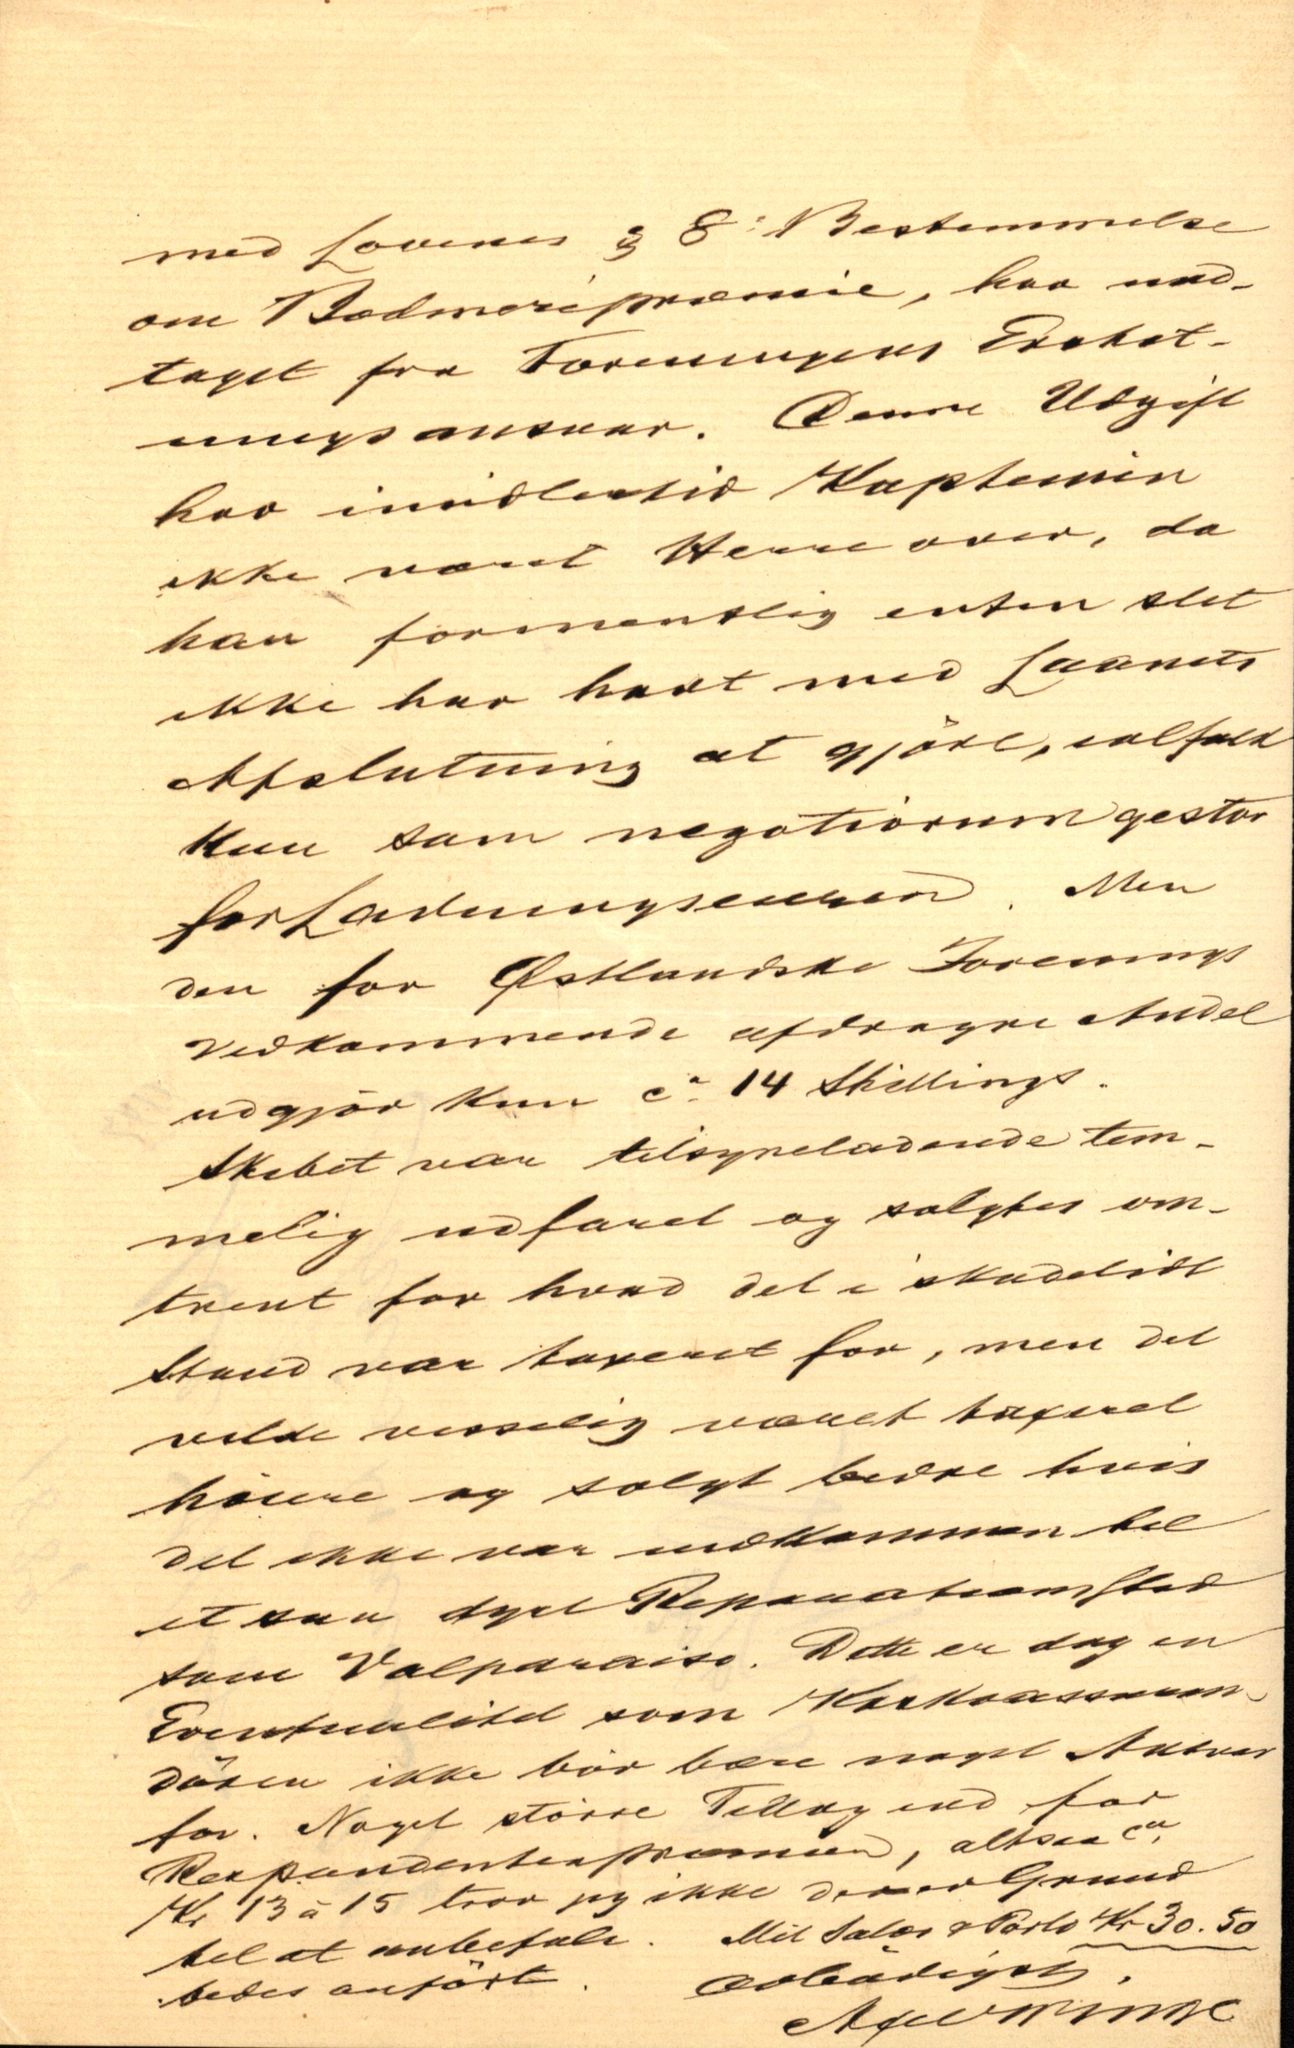 med Lovenes § 8s Bestemmelse
om Bodmeripræmie, har und-
taget fra Foreningens Erstat-
ningsansvar. Denne Udgift
har imidlertid Kaptemin
ikke været Herre over, da
han formentlig enten slet
ikke har havt med Laanets
Afslutning at gjöre, ialfald
kun som negotiorum gestor
for Ladningseieren. Men
den for Østlandske Forenings
Vedkommende afdragne Andel
udgjør kun ca. 14 Shillings.
Skibet var tilsyneladende tem-
melig udfaret og solgtes om-
trent for hvad det i skadelidt
Stand var taxeret for, men det
vilde visselig været taxeret
höiere og solgt bedre hvis
det ikke var indkommen til
et saa dyrt Reparationssted
som Valparaiso. Dette er dog en
Eventualitet som Kaskoassuran-
dören ikke bör bære noget Ansvar
for. Noget större Tillæg end for
Respondentiapræmien, altsaa ca.
Kr 13 à 15 tror jeg ikke der er Grund
til at anbefale. Mit Salær & Porto Kr 30.50
bedes anfört. Ærbödigst,
Axel Winge